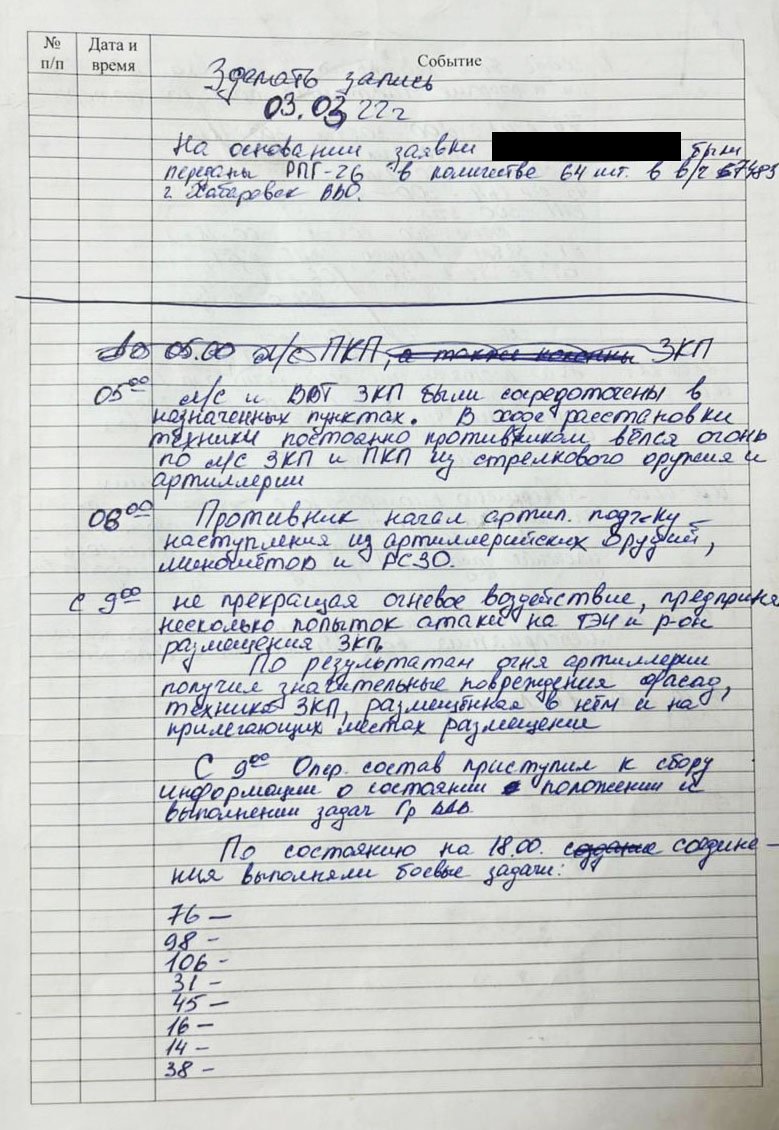 № Дата и Событие
п/п время
Зделать запись
03.03 22 г
На основании заявки были
переданы РПГ-26 в количестве 64 шт. в в/ч
г. Хабаровск ВВО.
До 05.00 л/с ПКП, а также колонны ЗКП
05⁰⁰ л/с и ВВТ ЗКП были сосредоточены в
назначенных пунктах. В ходе расстановки
техники постоянно противником вёлся огонь
по л/с ЗКП и ПКП из стрелкового оружия и
артиллерии
06⁰⁰ Противник начал артил. подг-ку
наступления из артиллерийских орудий,
миномётов и РСЗО.
с 9⁰⁰ не прекращая огневое воздействие, предприня
несколько попыток атаки на ТЭЧ и р-он
размещения ЗКП.
По результатам огня артиллерии
получил значительные повреждения фасад,
техника ЗКП, размещённая в нём и на
прилегающих местах размещения
С 9⁰⁰ Опер. состав приступил к сбору
информации о состоянии положении и
выполнении задач Гр ВДВ
По состоянию на 18.00. соедине-
ния выполняли боевые задачи:
76 —
98 -
106 -
31 -
45 -
16 -
14 -
38 -